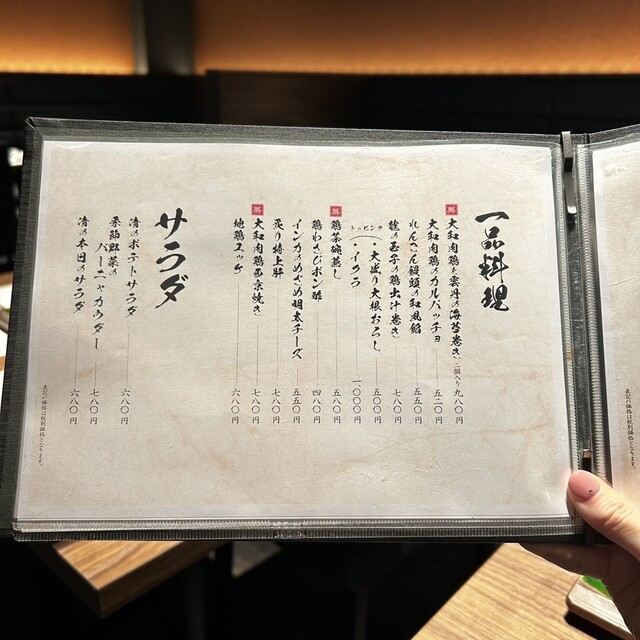 一品料理
薦 大和肉鶏と雲丹の海苔巻き 二個入り 九八〇円
大和肉鶏のカルパッチョ 五二〇円
れんこん饅頭の和風餡 五五〇円
雛の玉子の鶏出汁巻き 七八〇円
トッピング
・大盛り大根おろし 五〇〇円
・イクラ 一〇〇〇円
薦 鶏茶碗蒸し 五八〇円
鶏わさびポン酢 四八〇円
インカのめざめ明太チーズ 五五〇円
炙り特上肝 七八〇円
薦 大和肉鶏西京焼き 七八〇円
地鶏ユッケ 六八〇円
サラダ
清のポテトサラダ 六八〇円
季節野菜の
バーニャカウダー 七八〇円
清の本日のサラダ 六八〇円
表記の価格は税別価格となります。